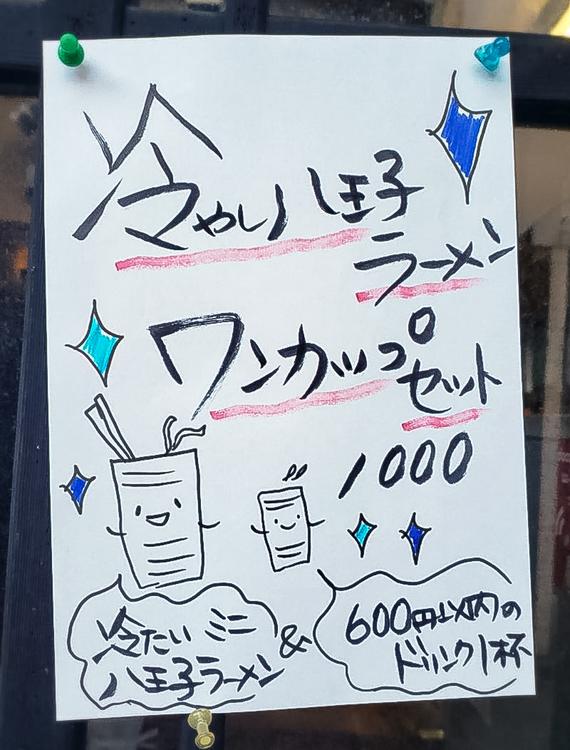 冷やし八王子
ラーメン
ワンカップ
セット
1000
冷たいミニ
八王子ラーメン
&
600円以内の
ドリンク1杯